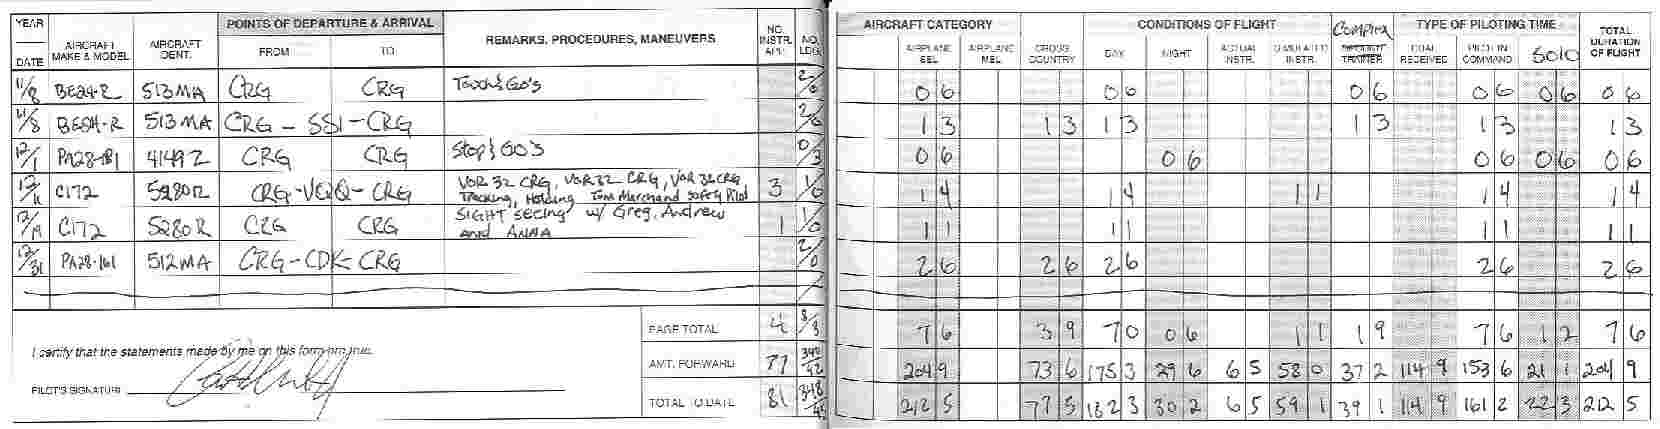 YEAR
DATE
AIRCRAFT MAKE & MODEL
AIRCRAFT IDENT.
POINTS OF DEPARTURE & ARRIVAL
FROM TO
REMARKS, PROCEDURES, MANEUVERS
NO. INSTR. APP.
NO. LDG.
AIRCRAFT CATEGORY
AIRPLANE SEL
AIRPLANE MEL
CROSS COUNTRY
CONDITIONS OF FLIGHT
DAY
NIGHT
ACTUAL INSTR.
SIMULATED INSTR.
Complex
TRAINER
TYPE OF PILOTING TIME
DUAL RECEIVED
PILOT IN COMMAND
SOLO
TOTAL DURATION OF FLIGHT
11/8 BE24-R 513MA CRG CRG Touch & GO's 2/0 0 6 0 6 0 6 0 6 0 6 0 6
11/8 513MA CRG - SSI - CRG 2/0 1 3 1 3 1 3 1 3 1 3 1 3
12/1 PA28-181 4149Z CRG CRG Stop & GO's 0/3 0 6 0 6 0 6 0 6 0 6
12/11 C172 5280R CRG - VQQ - CRG VOR 32 CRG, VOR 32 CRG, VOR 32 CRG 3 1/0 1 4 1 4 1 1 1 4 1 4
Tracking, Holding Tom Marchand Safety Pilot
12/19 C172 5280R CRG CRG SIGHT seeing w/ Greg, Andrew 1 1/0 1 1 1 1 1 1 1 1
and ANNA
12/31 PA28-161 512MA CRG - CDK - CRG 2/0 2 6 2 6 2 6 2 6 2 6
PAGE TOTAL 4 8/3 7 6 3 9 7 0 0 6 1 1 1 9 7 6 1 2 7 6
I certify that the statements made by me on this form are true.
AMT. FORWARD 77 340/42 204 9 73 6 175 3 29 6 6 5 58 0 37 2 114 9 153 6 21 1 204 9
PILOT'S SIGNATURE
TOTAL TO DATE 81 348/45 212 5 77 5 182 3 30 2 6 5 59 1 39 1 114 9 161 2 22 3 212 5